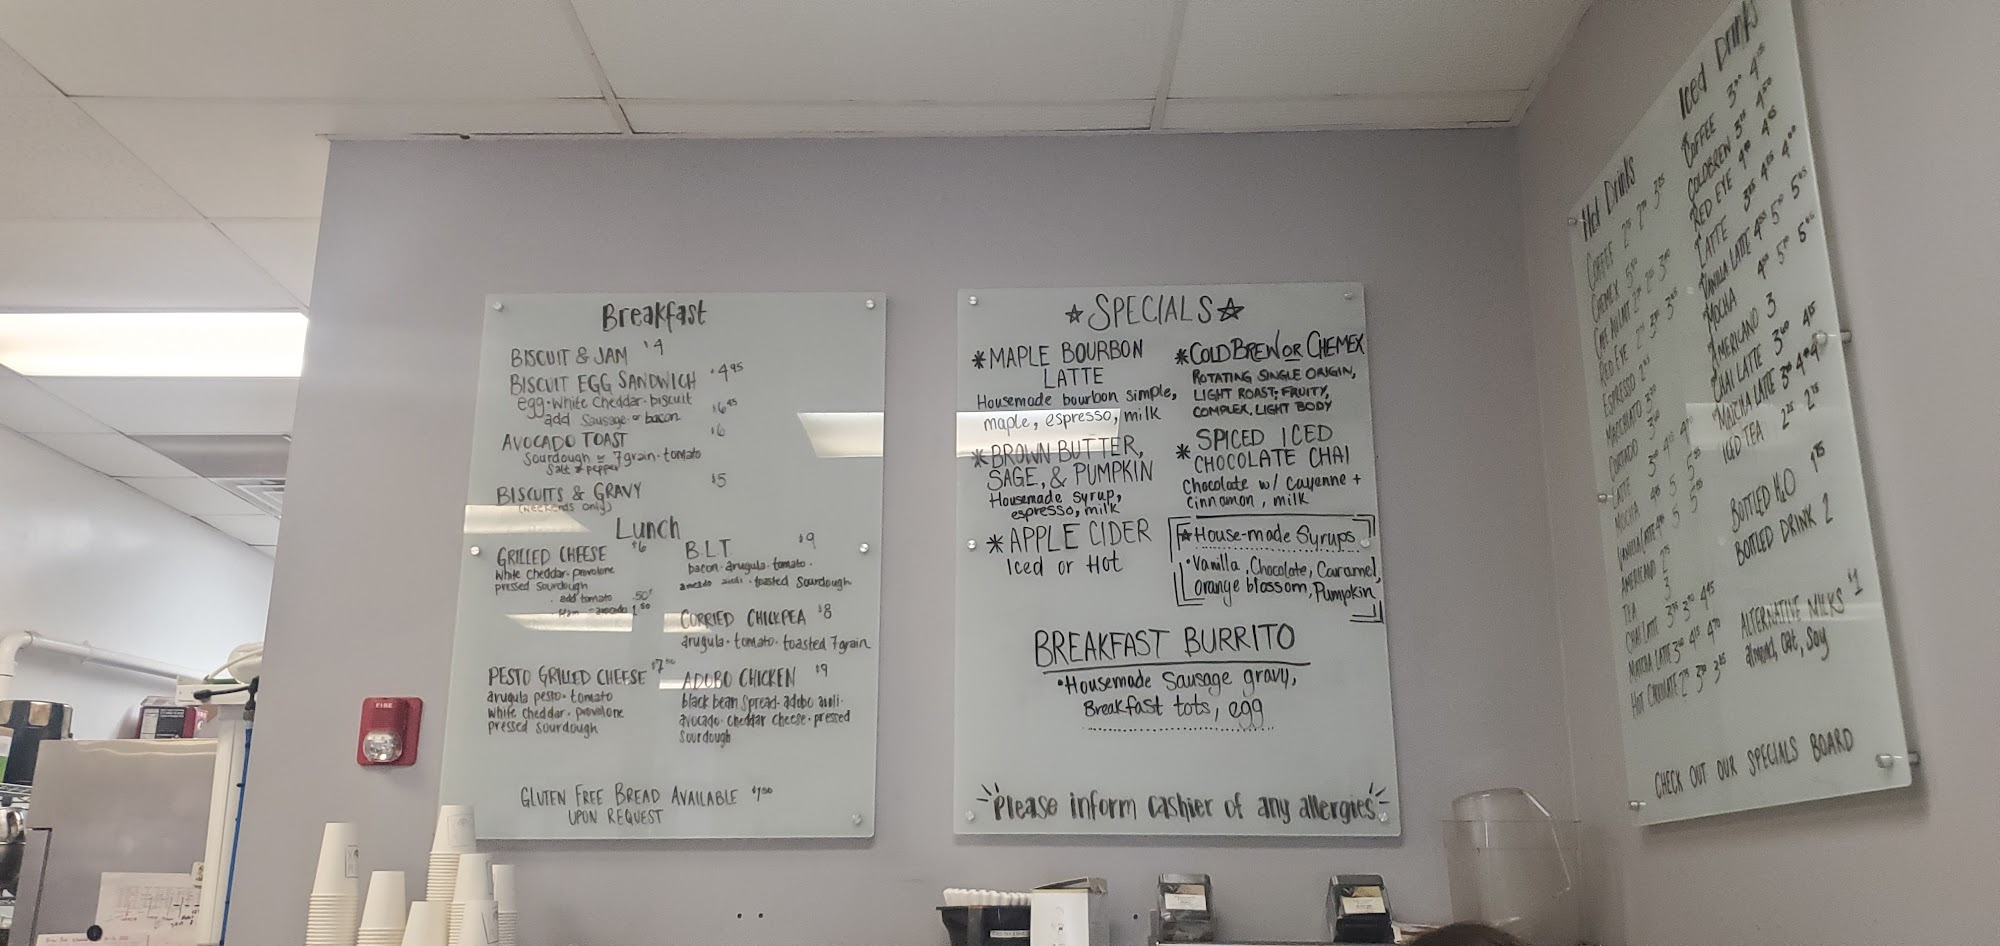 Breakfast
BISCUIT & JAM $4
BISCUIT EGG SANDWICH $4.95
egg • white cheddar • biscuit
add sausage or bacon $6.45
AVOCADO TOAST $6
Sourdough or 7grain • tomato
Salt & pepper
BISCUITS & GRAVY $5
(weekends only)
Lunch
GRILLED CHEESE $6
white cheddar • provolone
pressed sourdough
• add tomato .50¢
• Ham - avocado 1.50
PESTO GRILLED CHEESE $7.50
arugula pesto • tomato
white cheddar • provolone
pressed sourdough
B.L.T. $9
bacon • arugula • tomato •
aioli • toasted sourdough
CURRIED CHICKPEA $8
arugula • tomato • toasted 7grain
ADOBO CHICKEN $9
black bean spread • adobo aioli •
avocado • cheddar cheese • pressed
sourdough
GLUTEN FREE BREAD AVAILABLE
UPON REQUEST
☆SPECIALS☆
*MAPLE BOURBON
LATTE
Housemade bourbon simple,
maple, espresso, milk
*BROWN BUTTER,
SAGE, & PUMPKIN
Housemade syrup,
espresso, milk
*APPLE CIDER
Iced or Hot
*COLD BREW OR CHEMEX
ROTATING SINGLE ORIGIN,
LIGHT ROAST; FRUITY,
COMPLEX, LIGHT BODY
*SPICED ICED
CHOCOLATE CHAI
Chocolate w/ Cayenne +
Cinnamon, milk
☆House-made Syrups
•Vanilla, Chocolate, Caramel,
Orange blossom, Pumpkin
BREAKFAST BURRITO
•Housemade Sausage gravy,
Breakfast tots, egg
Please inform cashier of any allergies
Hot Drinks
COFFEE
CHEMEX
CAFE AU LAIT
RED EYE
ESPRESSO
MACCHIATO
CORTADO
LATTE
MOCHA
VANILLA LATTE
AMERICANO
TEA 3
CHAI LATTE
MATCHA LATTE
HOT CHOCOLATE
Iced Drinks
COFFEE
COLDBREW
RED EYE
LATTE
VANILLA LATTE
MOCHA
AMERICANO 3
CHAI LATTE
MATCHA LATTE
ICED TEA
BOTTLED H2O
BOTTLED DRINK 2
ALTERNATIVE MILKS $1
almond, oat, soy
CHECK OUT OUR SPECIALS BOARD
FIRE